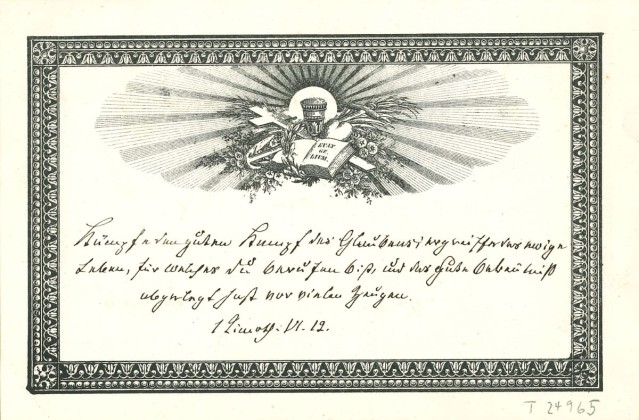 EVAN
GE
LIUM.
Kämpfe den guten Kampf des Glaubens; ergreiffe das ewige
Leben, für welches du berufen bist, und das gute Bekäntniß
abgelegt hast vor vielen Zeugen.
1 Timoth. VI. 12.
T 24965